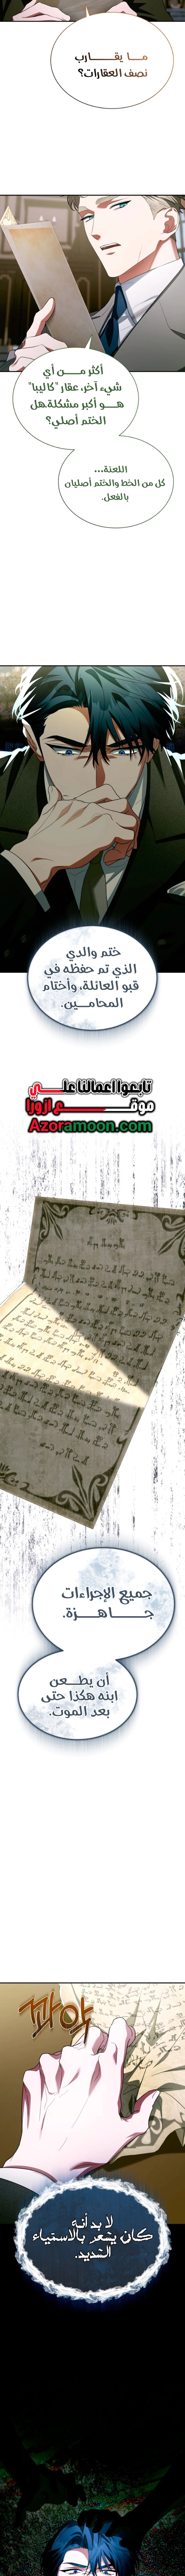 ما يقارب
نصف العقارات؟
أكثر من أي
شيء آخر، عقار "كاليبا"
هو أكبر مشكلة.هل
الختم أصلي؟
اللعنة...
كل من الخط والختم أصليان
بالفعل.
ختم والدي
الذي تم حفظه في
قبو العائلة، وأختام
المحامين.
تابعوا اعمالنا على
موقع ازورا
Azoramoon.com
جميع الإجراءات
جاهزة.
أن يطعن
ابنه هكذا حتى
بعد الموت.
콰악
لا بد أنه
كان يشعر بالاستياء
الشديد.